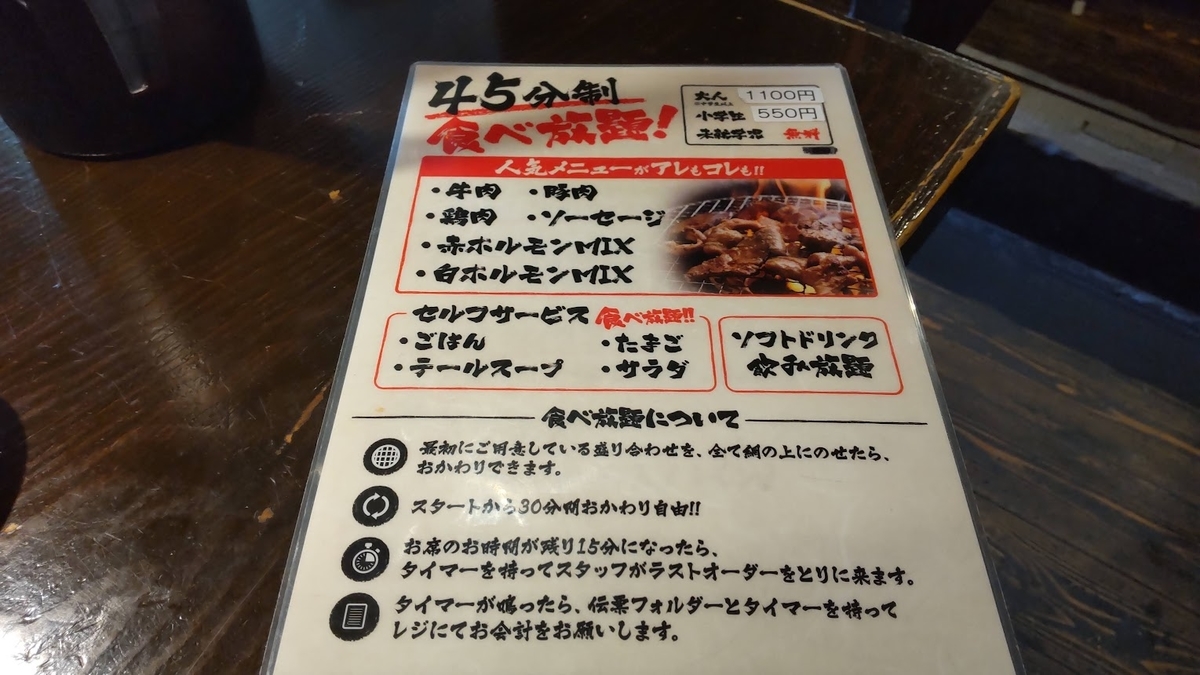 45分制
食べ放題!
大人 1100円
※中学生以上
小学生 550円
未就学児 無料
人気メニューがアレもコレも!!
・牛肉 ・豚肉
・鶏肉 ・ソーセージ
・赤ホルモンMIX
・白ホルモンMIX
セルフサービス 食べ放題!!
・ごはん ・たまご
・テールスープ ・サラダ
ソフトドリンク
飲み放題
食べ放題について
最初にご用意している盛り合わせを、全て網の上にのせたら、
おかわりできます。
スタートから30分間おかわり自由!!
お席のお時間が残り15分になったら、
タイマーを持ってスタッフがラストオーダーをとりに来ます。
タイマーが鳴ったら、伝票フォルダーとタイマーを持って
レジにてお会計をお願いします。